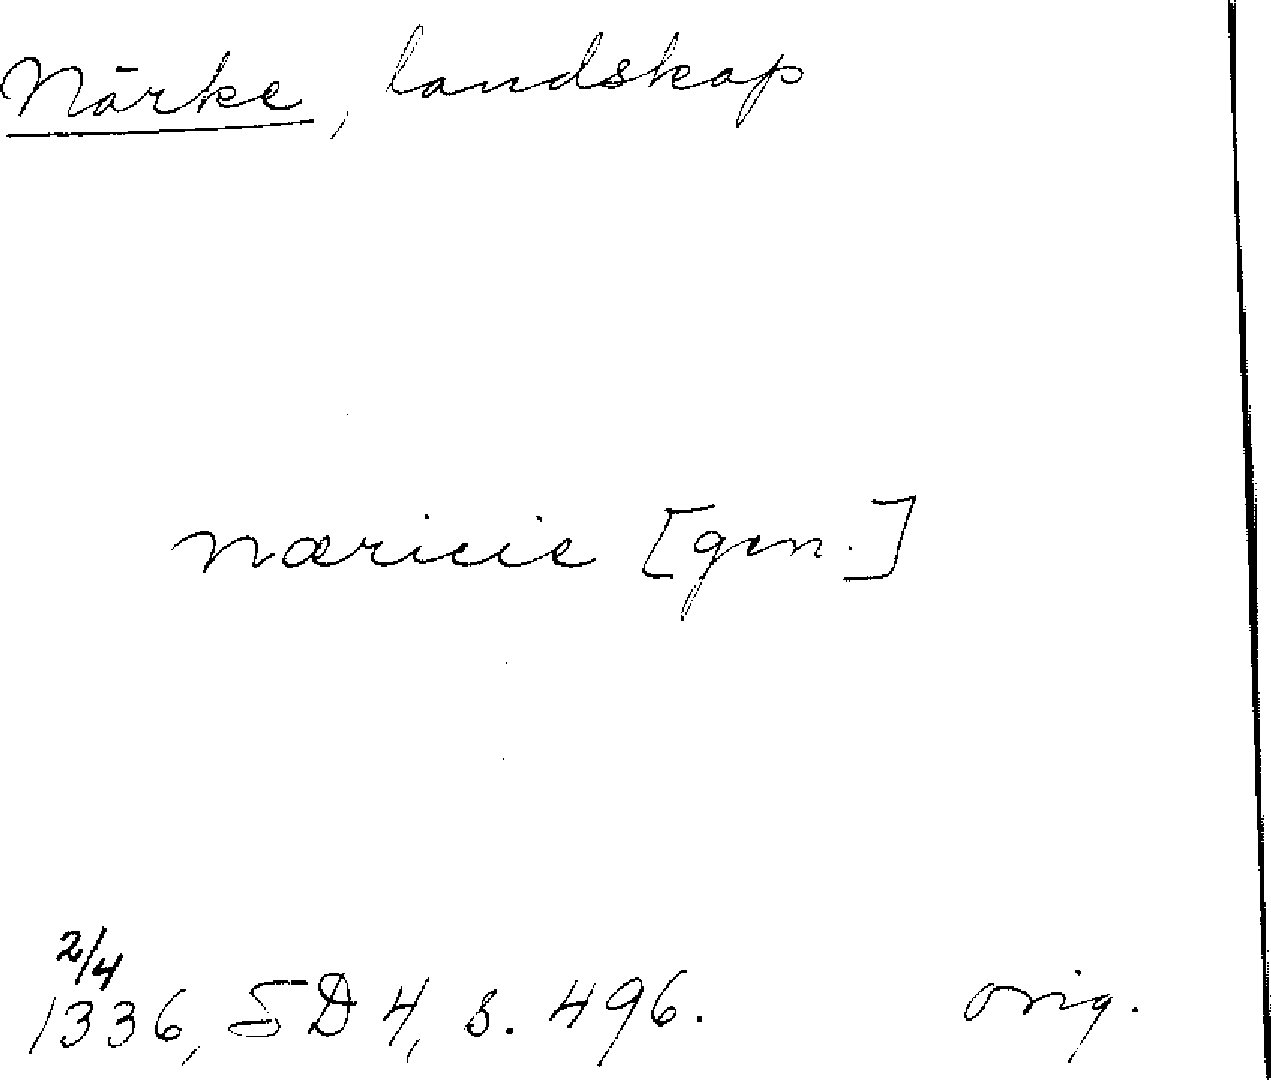 Närke, landskap
næricie [gen.]
2/4
1336, SD 4, s. 496. orig.